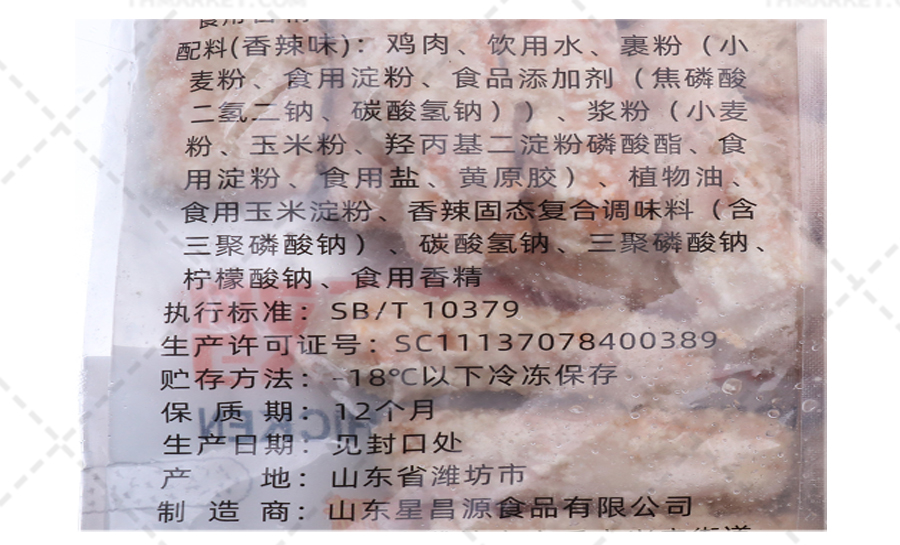 配料(香辣味)：鸡肉、饮用水、裹粉（小
麦粉、食用淀粉、食品添加剂（焦磷酸
二氢二钠、碳酸氢钠））、浆粉（小麦
粉、玉米粉、羟丙基二淀粉磷酸酯、食
用淀粉、食用盐、黄原胶）、植物油、
食用玉米淀粉、香辣固态复合调味料（含
三聚磷酸钠）、碳酸氢钠、三聚磷酸钠、
柠檬酸钠、食用香精
执行标准：SB/T 10379
生产许可证号：SC11137078400389
贮存方法：-18℃以下冷冻保存
保 质 期：12个月
生产日期：见封口处
产 地：山东省潍坊市
制 造 商：山东星昌源食品有限公司